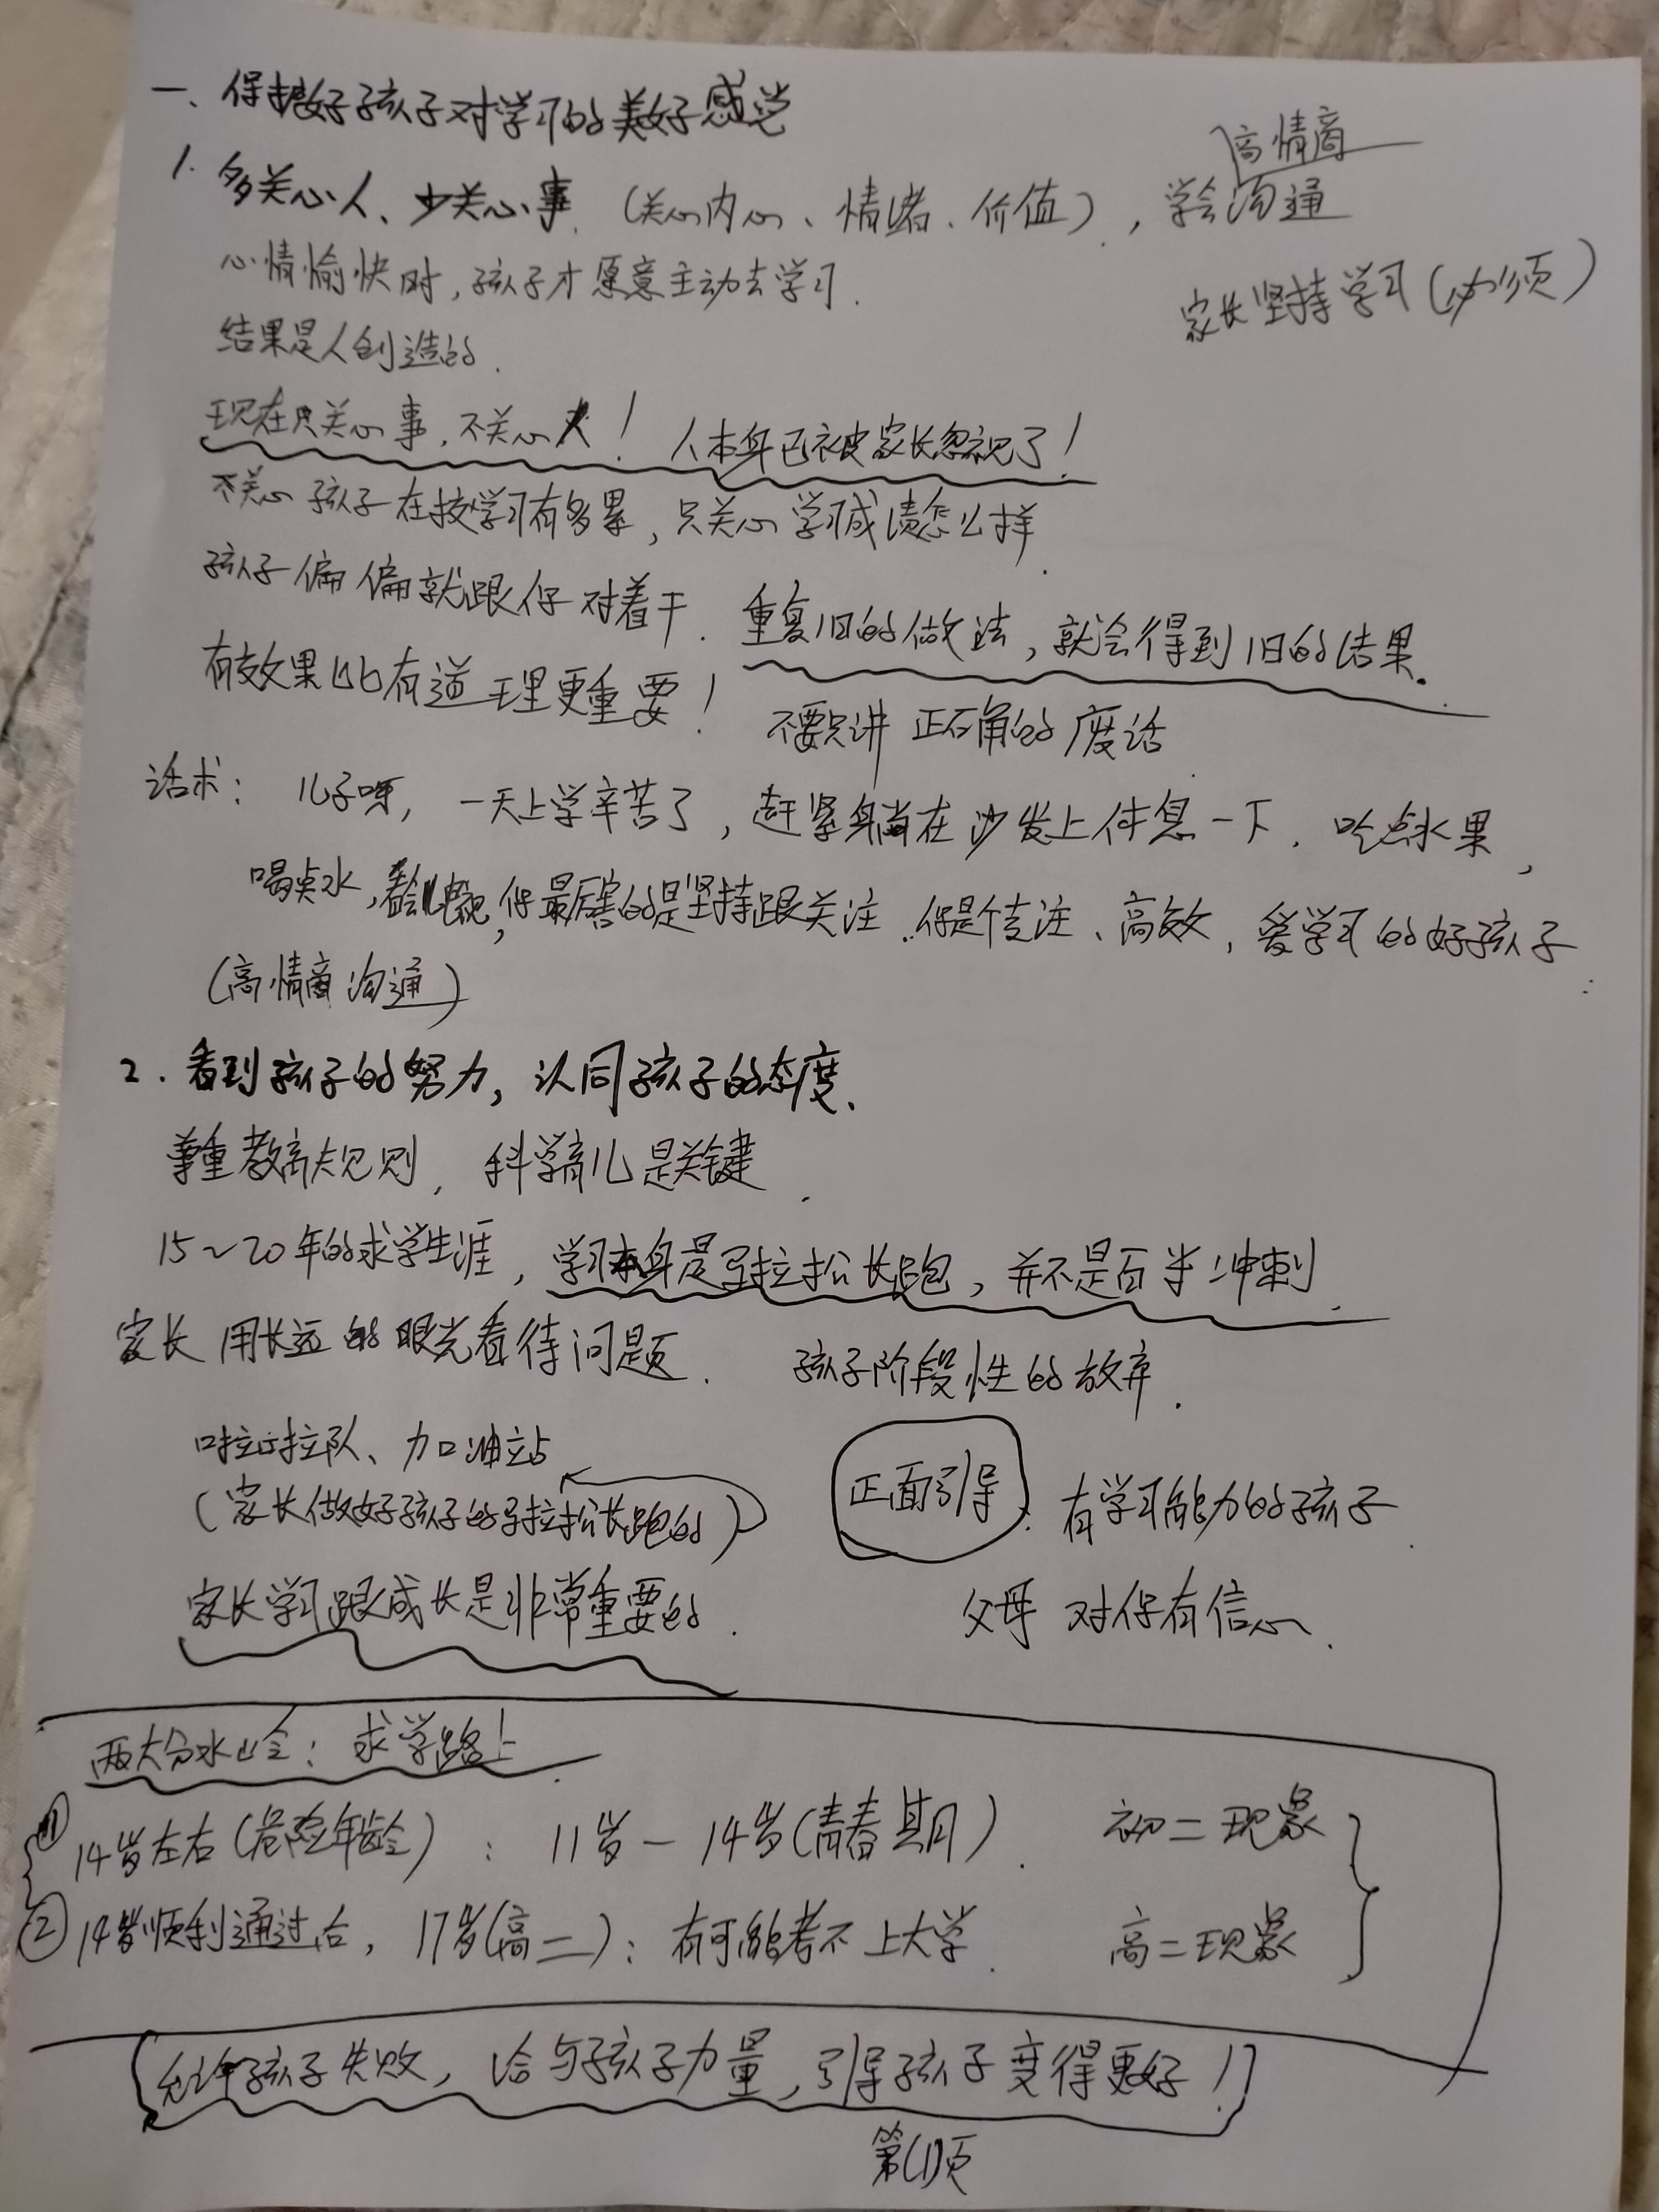 一、保护好孩子对学习的美好感觉
高情商
1. 多关心人、少关心事.（关心内心、情绪、价值），学会沟通
心情愉快时，孩子才愿意主动去学习.
家长坚持学习（必须）
结果是人创造的.
现在只关心事，不关心人！人本身已被家长忽视了！
不关心孩子在校学习有多累，只关心学习成绩怎么样.
孩子偏偏就跟你对着干. 重复旧的做法，就会得到旧的结果.
有效果比有道理更重要！不要只讲正确的废话.
话术：儿子呀，一天上学辛苦了，赶紧躺在沙发上休息一下，吃点水果，
喝点水，看会儿电视，你最厉害的是坚持跟关注. 你是个专注、高效，爱学习的好孩子
（高情商沟通）
2. 看到孩子的努力，认同孩子的态度、
尊重教育规则，科学育儿是关键.
15～20年的求学生涯，学习本身是马拉松长跑，并不是百米冲刺.
家长用长远的眼光看待问题. 孩子阶段性的放弃.
啦啦队、加油站
正面引导. 有学习能力的孩子.
（家长做好孩子的马拉松长跑的）
家长学习跟成长是非常重要的.
父母对你有信心.
两大分水岭：求学路上.
① 14岁左右（危险年龄）：11岁－14岁（青春期）. 初二现象
② 14岁顺利通过后，17岁（高二）：有可能考不上大学. 高二现象
[允许孩子失败，给与孩子力量，引导孩子变得更好！]
第(1)页